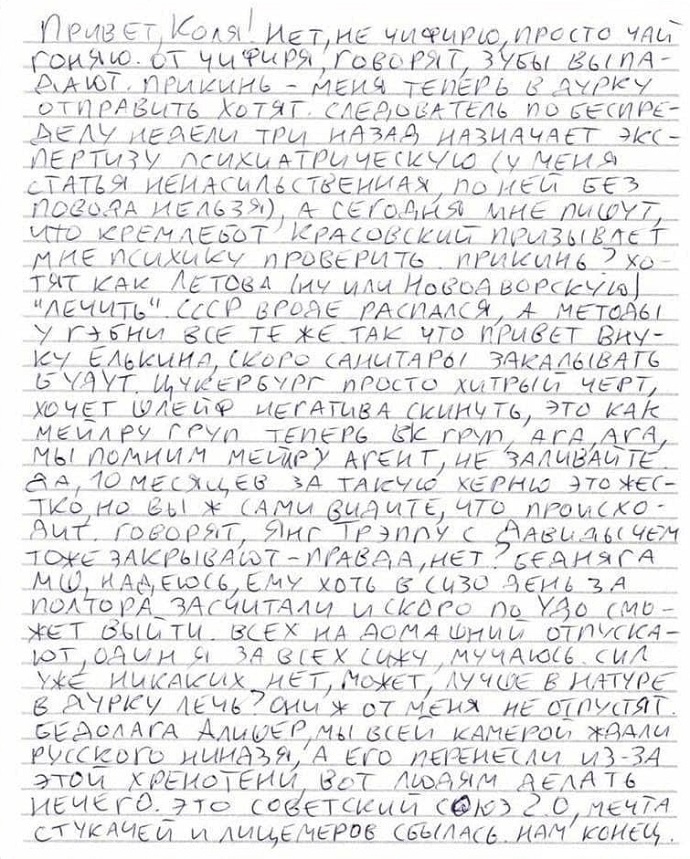 Привет, Коля! Нет, не чифирю, просто чай
гоняю. От чифиря, говорят, зубы выпа-
дают. Прикинь – меня теперь в дурку
отправить хотят. Следователь по беспре-
делу недели три назад назначает экс-
пертизу психиатрическую (у меня
статья ненасильственная, по ней без
повода нельзя), а сегодня мне пишут,
что кремлебот Красовский призывает
мне психику проверить. Прикинь? Хо-
тят как Летова (ну или Новодворскую)
"лечить". СССР вроде распался, а методы
у гэбни все те же. Так что привет вну-
ку Елькина, скоро санитары закалывать
будут. Цукербург просто хитрый черт,
хочет шлейф негатива скинуть, это как
Мейлру груп теперь ВК груп, ага, ага,
мы помним Мейлру агент, не заливайте.
Да, 10 месяцев за такую херню это жес-
тко, но вы ж сами видите, что происхо-
дит. Говорят, Янг Трэппу с Давидычем
тоже закрывают – правда, нет? Бедняга
МШ, надеюсь, ему хоть в СИЗО день за
полтора засчитали и скоро по УДО смо-
жет выйти. Всех на домашний отпуска-
ют, один я за всех сижу, мучаюсь. Сил
уже никаких нет, может, лучше в натуре
в дурку лечь? Они ж от меня не отпустят.
Бедолага Алишер, мы всей камерой ждали
русского ниндзя, а его перенесли из-за
этой хренотени, вот людям делать
нечего. Это Советский Союз 2.0, мечта
стукачей и лицемеров сбылась. Нам конец.